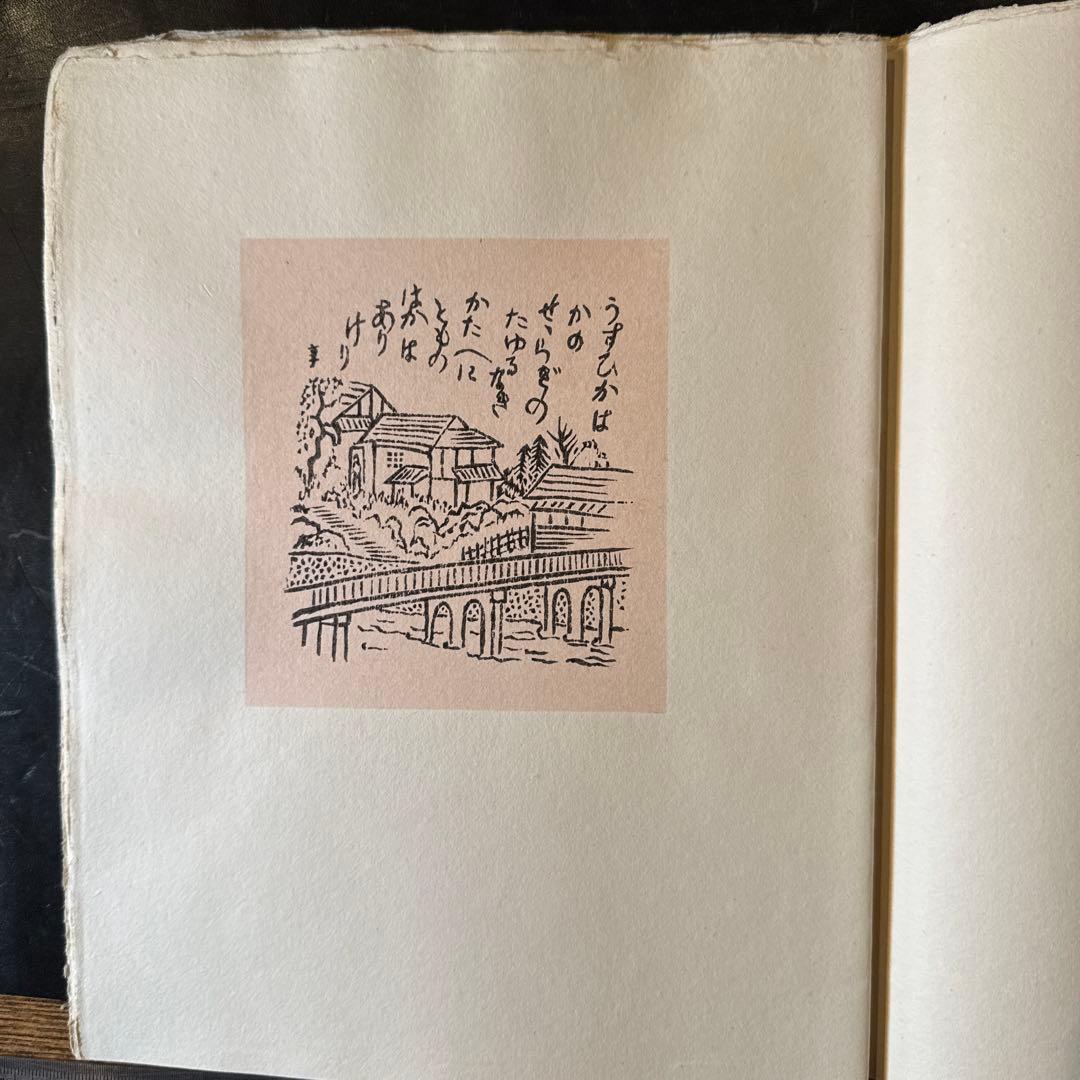 うすひかは
かの
せゝらぎの
たゆる
なき
かたへに
ともの
はかは
あり
けり